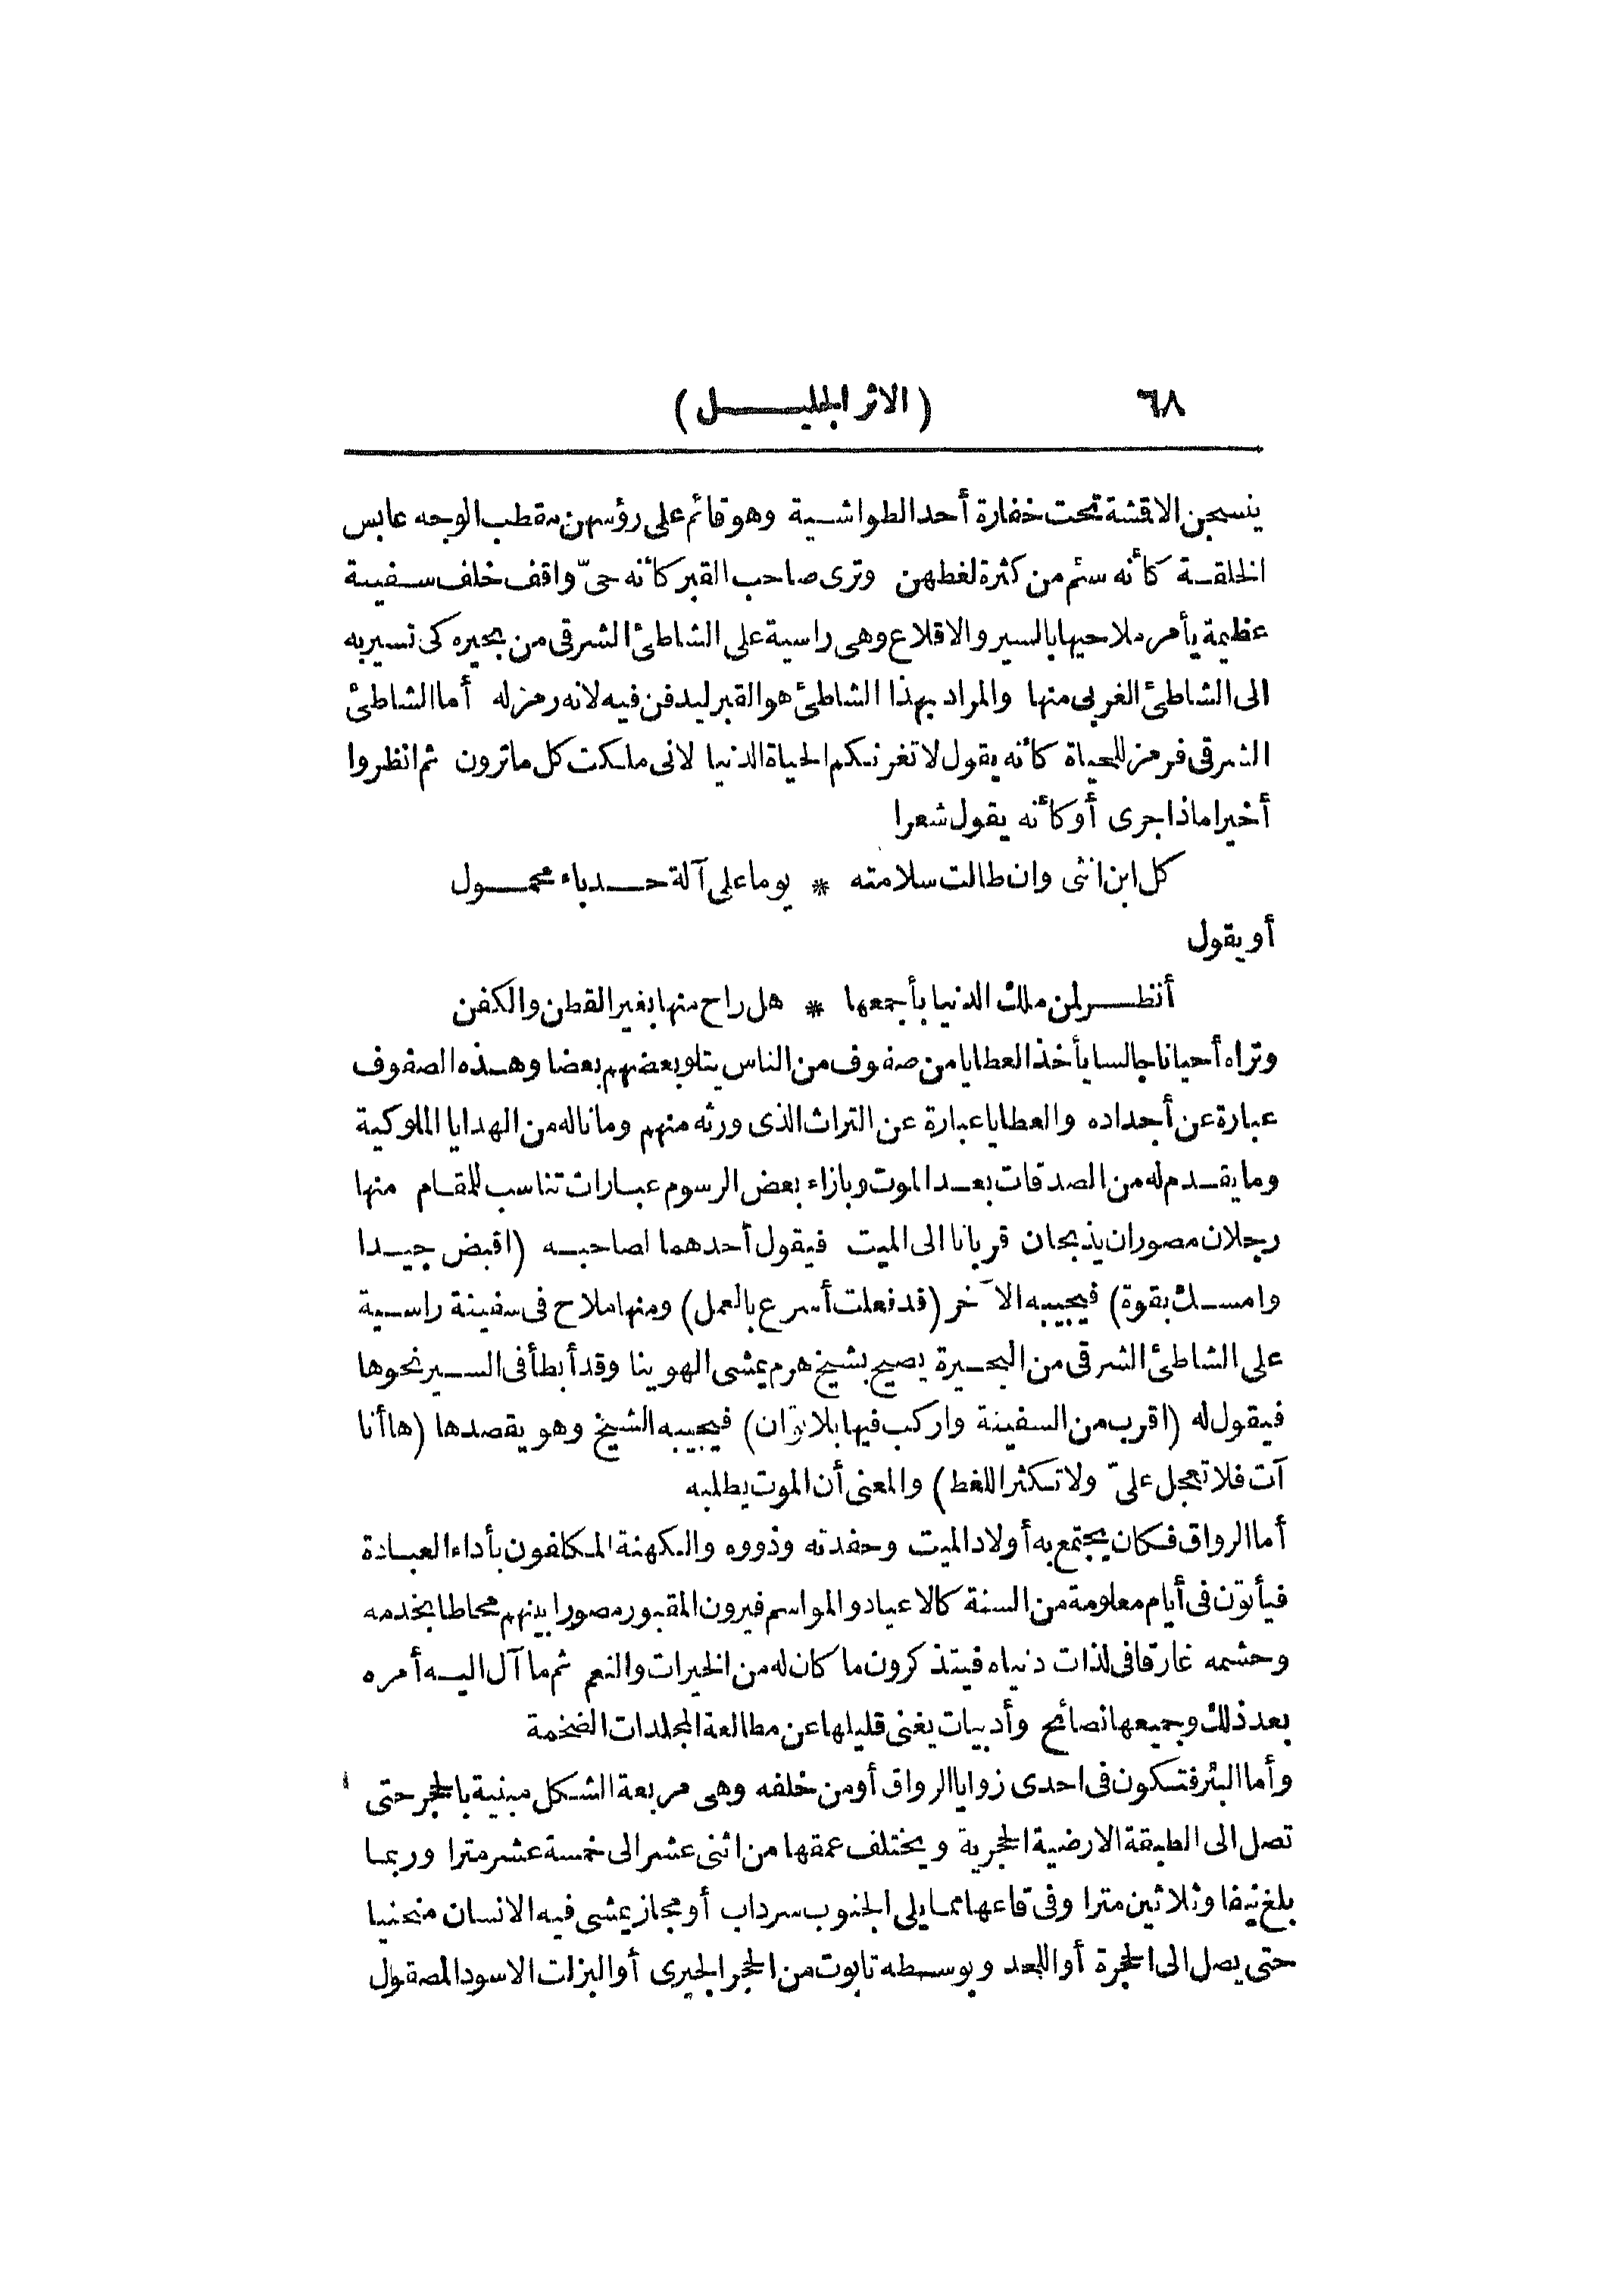 ٦٨ (الاثر الجليل)
ينسجن الاقشة تحت خفارة أحد الطواشية وهو قائم على رؤسهن مقطب الوجه عابس
الخلقة كأنه سئم من كثرة لغطهن وترى صاحب القبر كأنه حىّ واقف خلف سفينة
عظيمة يأمر ملاحيها بالسير والاقلاع وهى راسية على الشاطئ الشرقى من بحيره كى تسير به
الى الشاطئ الغربى منها والمراد بهذا الشاطئ هو القبر ليدفن فيه لانه رمز له أما الشاطئ
الشرقى فرمز للحياة كأنه يقول لا تغرنكم الحياة الدنيا لانى ملكت كل ما ترون ثم انظروا
أخيرا ماذا جرى أو كأنه يقول شعرا
كل ابن انثى وان طالت سلامته * يوما على آلة حدباء محمول
أو يقول
أنظر لمن ملك الدنيا بأجمعها * هل راح منها بغير القطن والكفن
وتراه أحيانا جالسا يأخذ العطايا من صفوف من الناس يتلو بعضهم بعضا وهذه الصفوف
عبارة عن أجداده والعطايا عبارة عن التراث الذى ورثه منهم وما ناله من الهدايا الملوكية
وما يقدم له من الصدقات بعد الموت وبازاء بعض الرسوم عبارات تناسب للمقام منها
رجلان مصوران يذبحان قربانا الى الميت فيقول أحدهما لصاحبه (اقبض جيدا
وامسك بقوة) فيجيبه الآخر (قد فعلت أسرع بالعمل) ومنها ملاح فى سفينة راسية
على الشاطئ الشرقى من البحيرة يصيح بشيخ هرم يمشى الهوينا وقد أبطأ فى السير نحوها
فيقول له (اقرب من السفينة واركب فيها بلا توان) فيجيبه الشيخ وهو يقصدها (ها أنا
آت فلا تعجل علىّ ولا تكثر اللغط) والمعنى أن الموت يطلبه
أما الرواق فكان يجتمع به أولاد الميت وحفدته وذووه والكهنة المكلفون بأداء العبادة
فيأتون فى أيام معلومة من السنة كالاعياد والمواسم فيرون المقبور مصورا بينهم محاطا بخدمه
وحشمه غارقا فى لذات دنياه فيتذكرون ما كان له من الخيرات والنعم ثم ما آل اليه أمره
بعد ذلك وجميعها نصائح وأدبيات يغنى قليلها عن مطالعة المجلدات الضخمة
وأما البئر فتكون فى احدى زوايا الرواق أو من خلفه وهى مربعة الشكل مبنية بالحجر حتى
تصل الى الطبقة الارضية الحجرية ويختلف عمقها من اثنى عشر الى خمسة عشر مترا وربما
بلغ نيفا وثلاثين مترا وفى قاعها مما يلى الجنوب سرداب أو مجاز يمشى فيه الانسان منحنيا
حتى يصل الى الحجرة أو اللحد وبوسطه تابوت من الحجر الجيرى أو البزلت الاسود المصقول